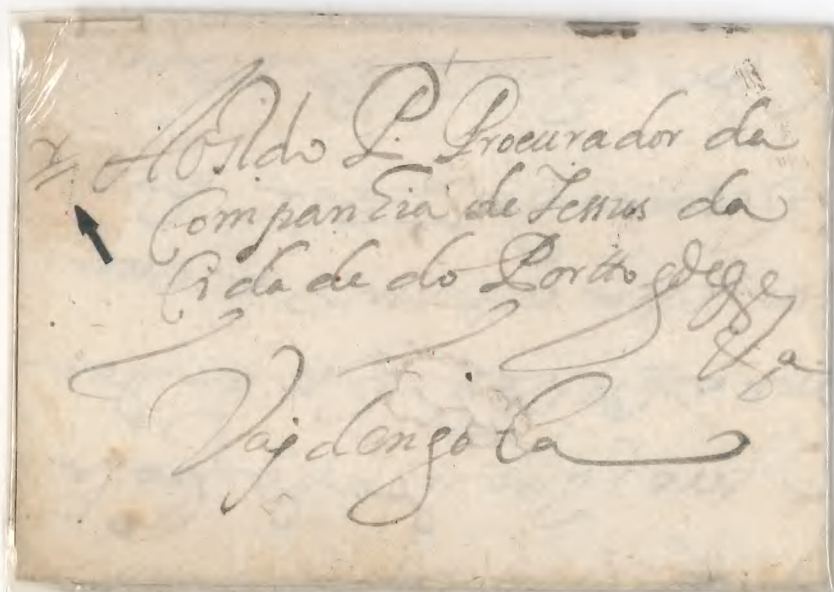 Ao P. do P. Procurador da
Companhia de Jessus da
Cidade do Portto
&a
Vaj dengola